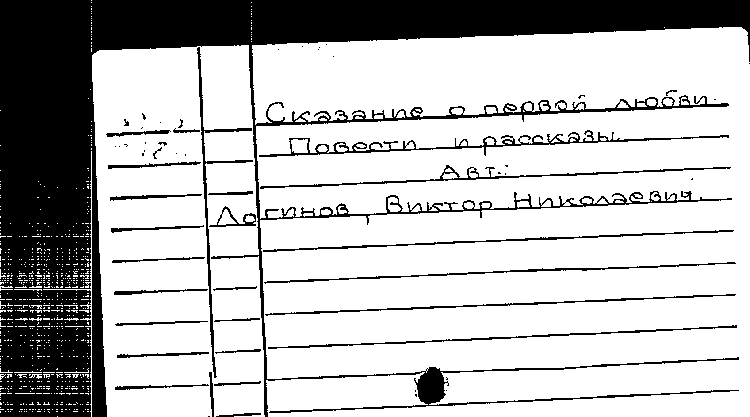 Сказание о первой любви.
Повести и рассказы.
Авт.:
Логинов, Виктор Николаевич.